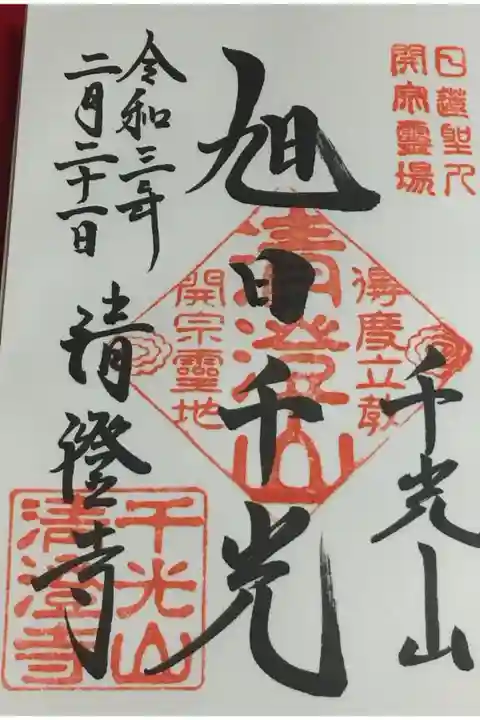 日蓮聖人
開宗霊場
千光山
旭日千光
得度立教
清澄山
開宗靈地
令和三年
二月二十一日
清澄寺
千光山
清澄寺